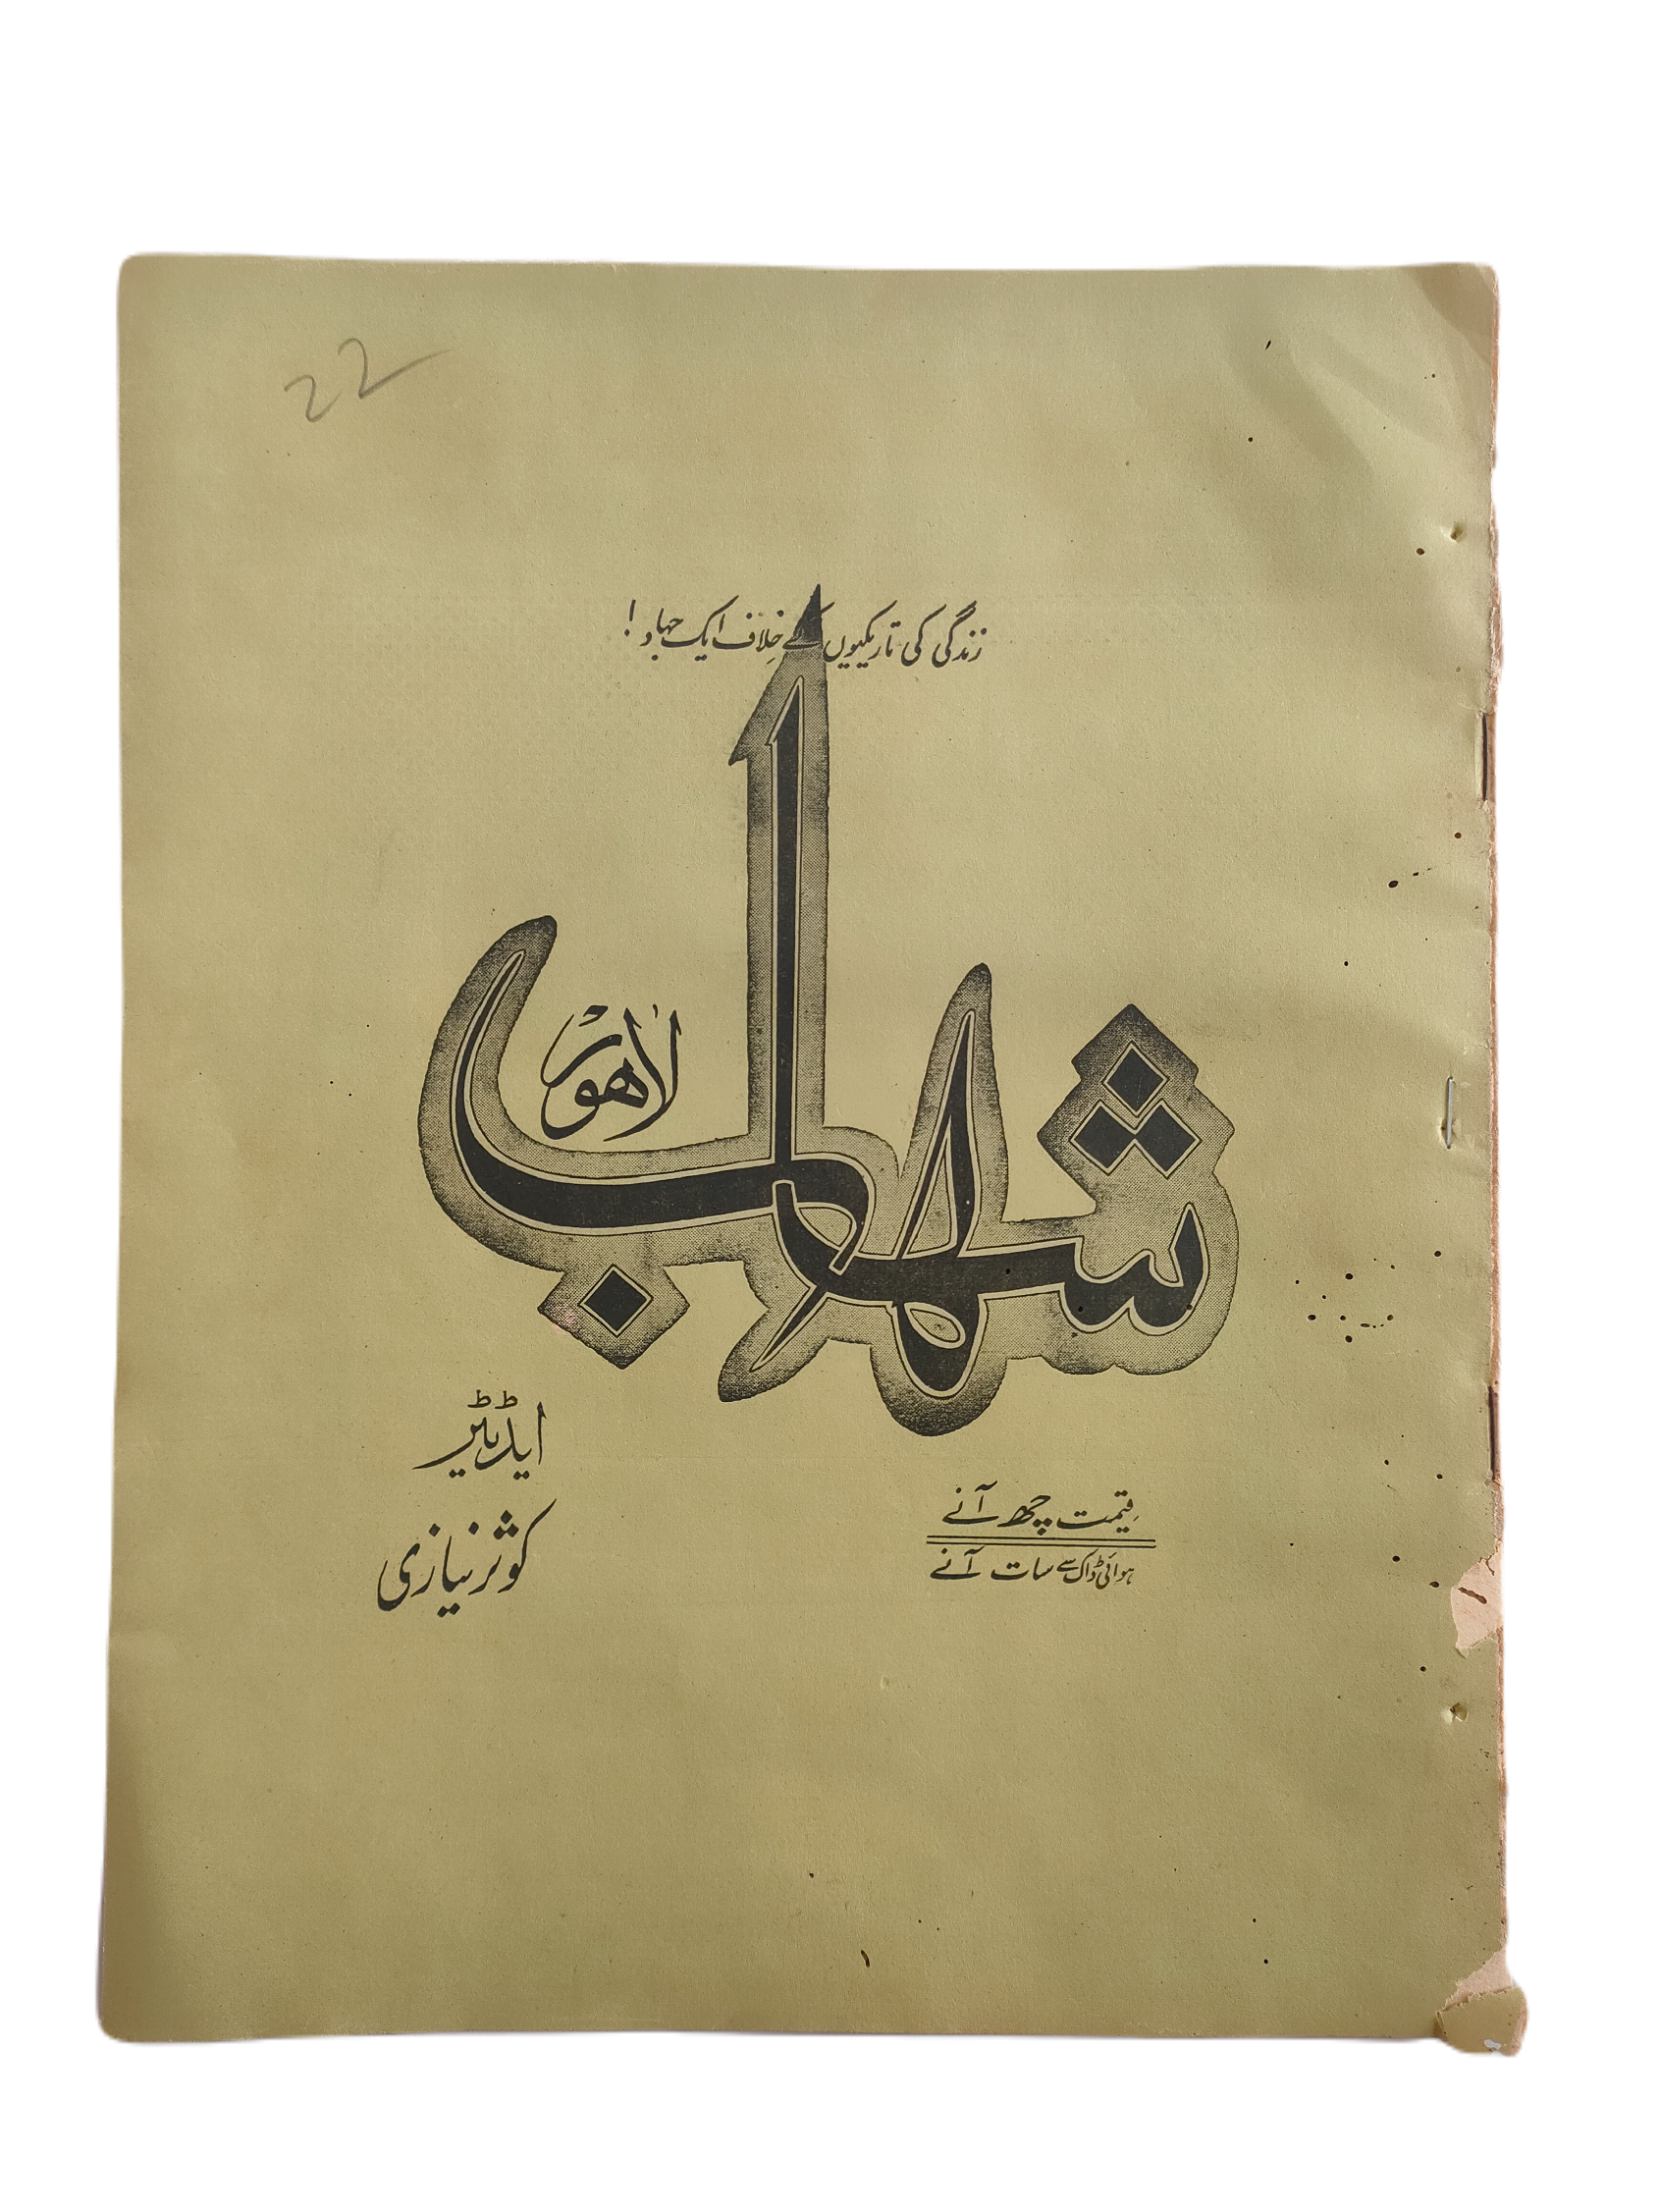 22
زندگی کی تاریکیوں کے خلاف ایک جہاد!
شہاب
لاہور
ایڈیٹر
کوثر نیازی
قیمت چھ آنے
ہوائی ڈاک سے سات آنے